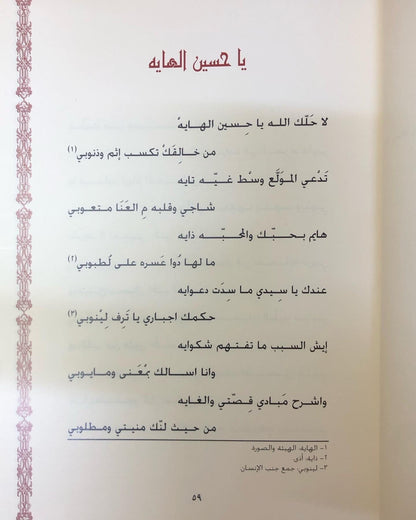 يا حسين الهايه
لا حَلّك الله يا حِسين الهايهْ
من خالِفَكْ تكسب إثم وذنوبي(١)
تَدْعي المولَّع وسْط غيّه تايه
شاجي وقلبه مِ العَنَا متعوبي
هايم بحبّك والمحبّه ذايه
ما لها دُوا عَسره على لُطبوبي(٢)
عندك يا سِيدي ما سِدَت دعوايه
حكمك اجباري يا تَرِف لِيْنوبي(٣)
إيش السبب ما تفتهم شكوايه
وانا اسالك بمْعَنى ومايوبي
واشرح مَبادي قِصّتي والغايه
من حيث لنّك منيتي ومطلوبي
١- الهايه: الهيئه والصوره
٢- ذايه: أذى
٣- لينوبي: جمع جنب الإنسان
٥٩